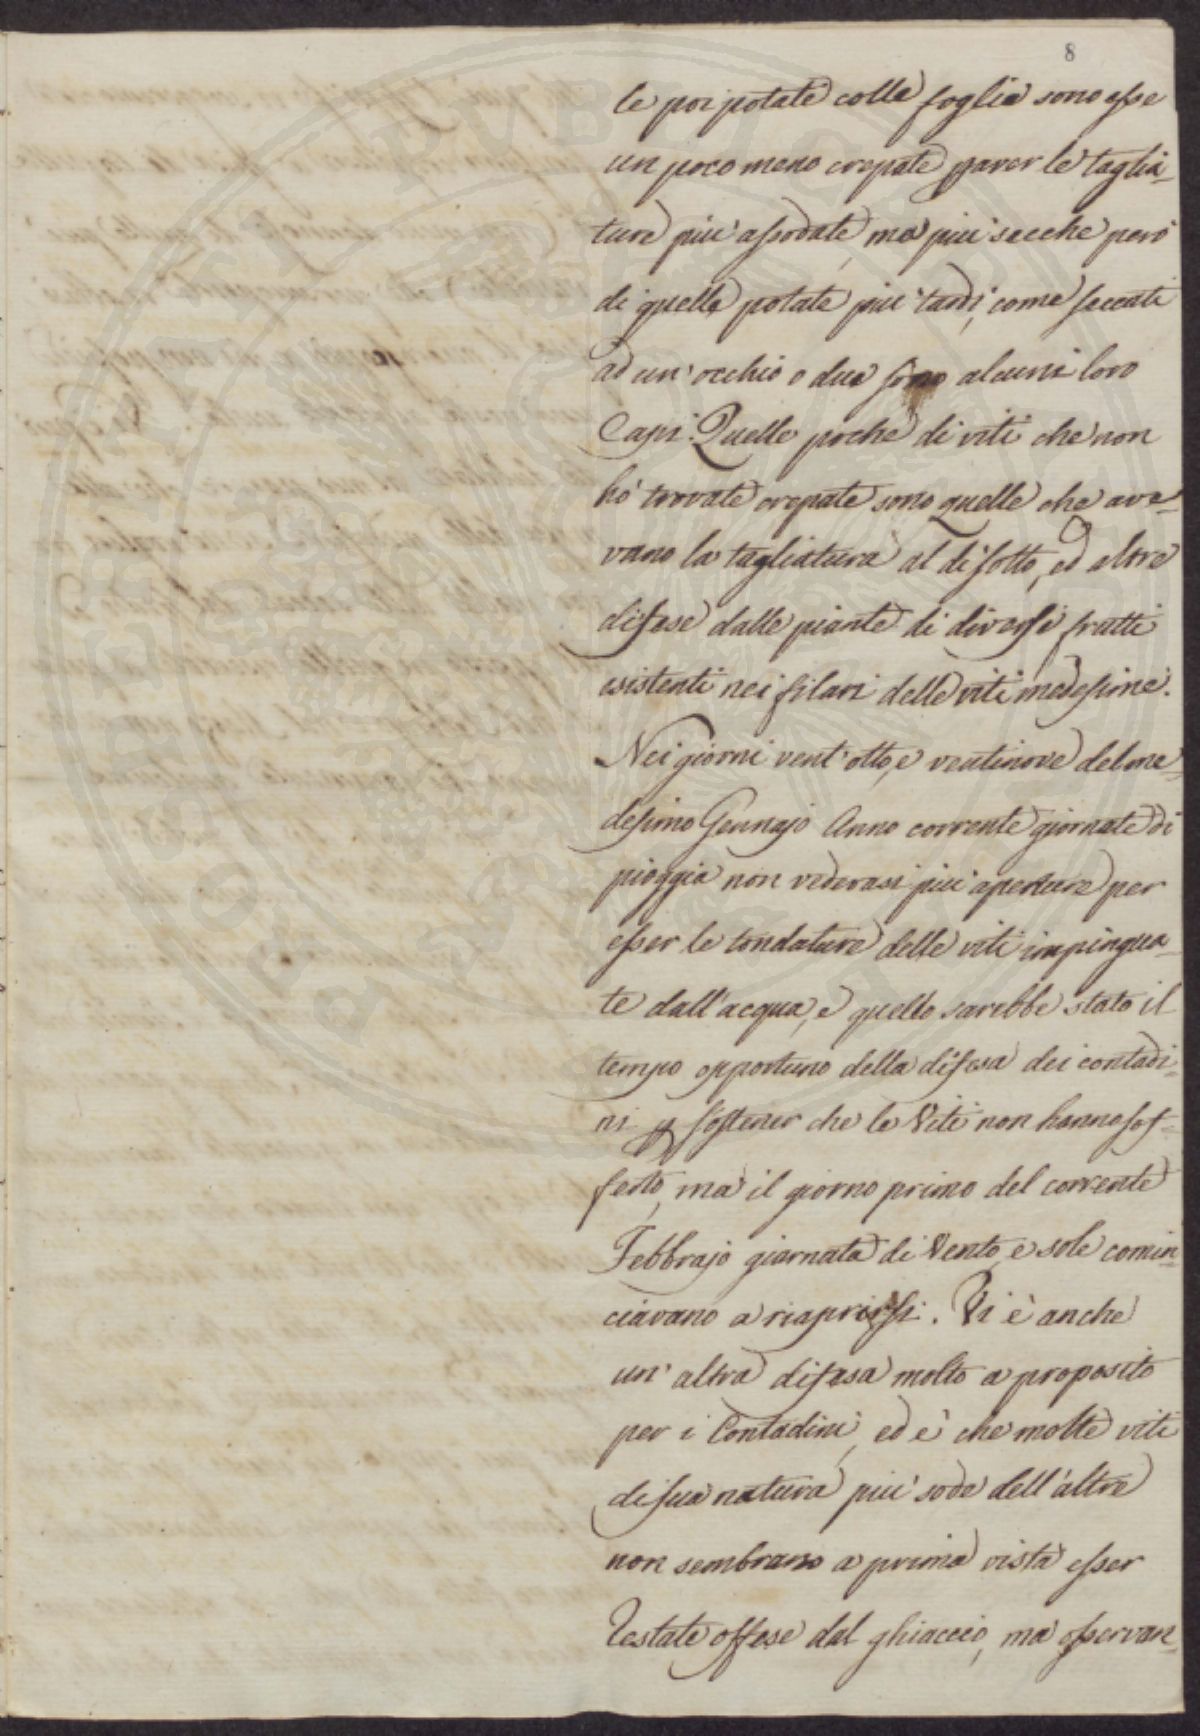 8
le poi potate colle foglia sono esse
un poco meno crepate p aver le taglia-
ture piu' assodate, ma piu' secche però
di quelle potate piu' tardi, come seccati
ad un' occhio o due sono alcuni loro
Capi. Quelle poche di viti che non
hò trovate crepate sono quelle che ave-
vano la tagliatura al di sotto, ed altre
difese dalle piante di diversi frutti
esistenti nei filari delle viti medesime.
Nei giorni vent' otto, e ventinove del me-
desimo Gennajo Anno corrente giornate di
pioggia non vedevasi piu' aperture per
esser le tondature delle viti impingua-
te dall'acqua, e quello sarebbe stato il
tempo opportuno della difesa dei contadi-
ni p sostener che le Viti non hanno sof-
ferto, ma il giorno primo del corrente
Febbrajo giornata di Vento, e sole comin
ciavano a riaprirsi. Vi è anche
un' altra difesa molto a proposito
per i Contadini, ed è che molte viti
di sua natura piu' sode dell'altre
non sembrano a prima vista esser
Restate offese dal ghiaccio, ma osservan-
PUBLIC